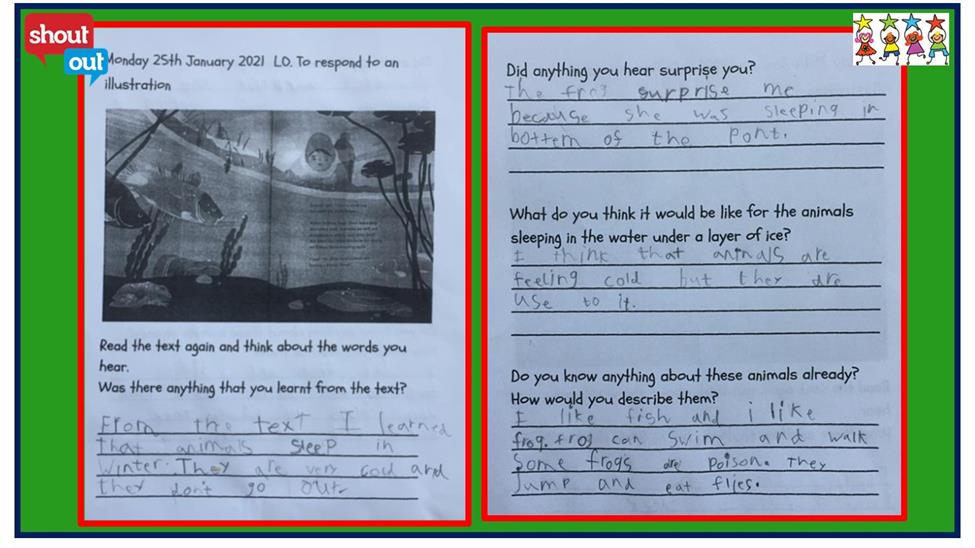 shout
out
Monday 25th January 2021 LO. To respond to an
illustration
Read the text again and think about the words you
hear.
Was there anything that you learnt from the text?
From the text I learned
that animals sleep in
winter. They are very cold and
they don't go out.
Did anything you hear surprise you?
The frog surprise me
because she was sleeping in
bottem of the pont.
What do you think it would be like for the animals
sleeping in the water under a layer of ice?
I think that animals are
feeling cold but they are
use to it.
Do you know anything about these animals already?
How would you describe them?
I like fish and i like
frog. frog can swim and walk
Some frogs are poison. They
Jump and eat flies.